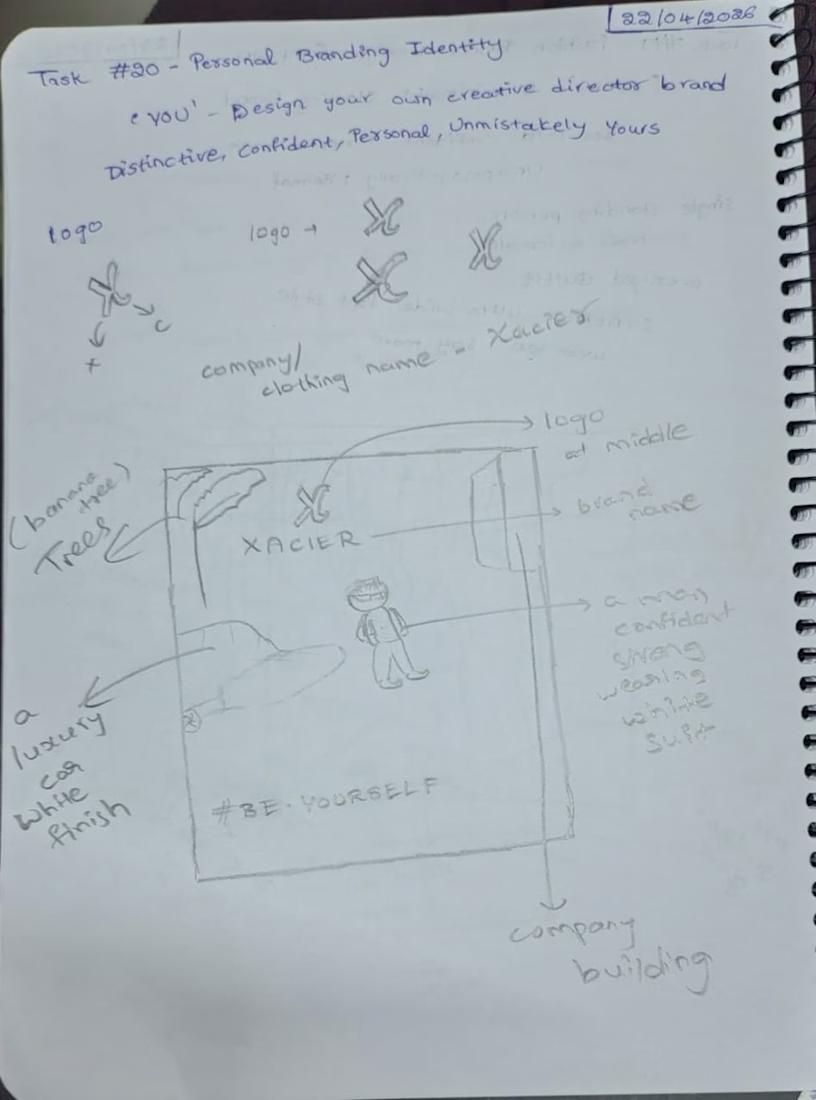 22/04/2026
Task #20 - Personal Branding Identity
'YOU' - Design your own creative director brand
Distinctive, Confident, Personal, Unmistakely Yours
logo
logo →
X
X
X
X
c
+
company/
clothing name - Xacier
logo
at middle
(banana
tree)
Trees
X
XACIER
brand
name
a man
confident
strong
wearing
white
suit
a
luxury
car
white
finish
#BE.YOURSELF
company
building